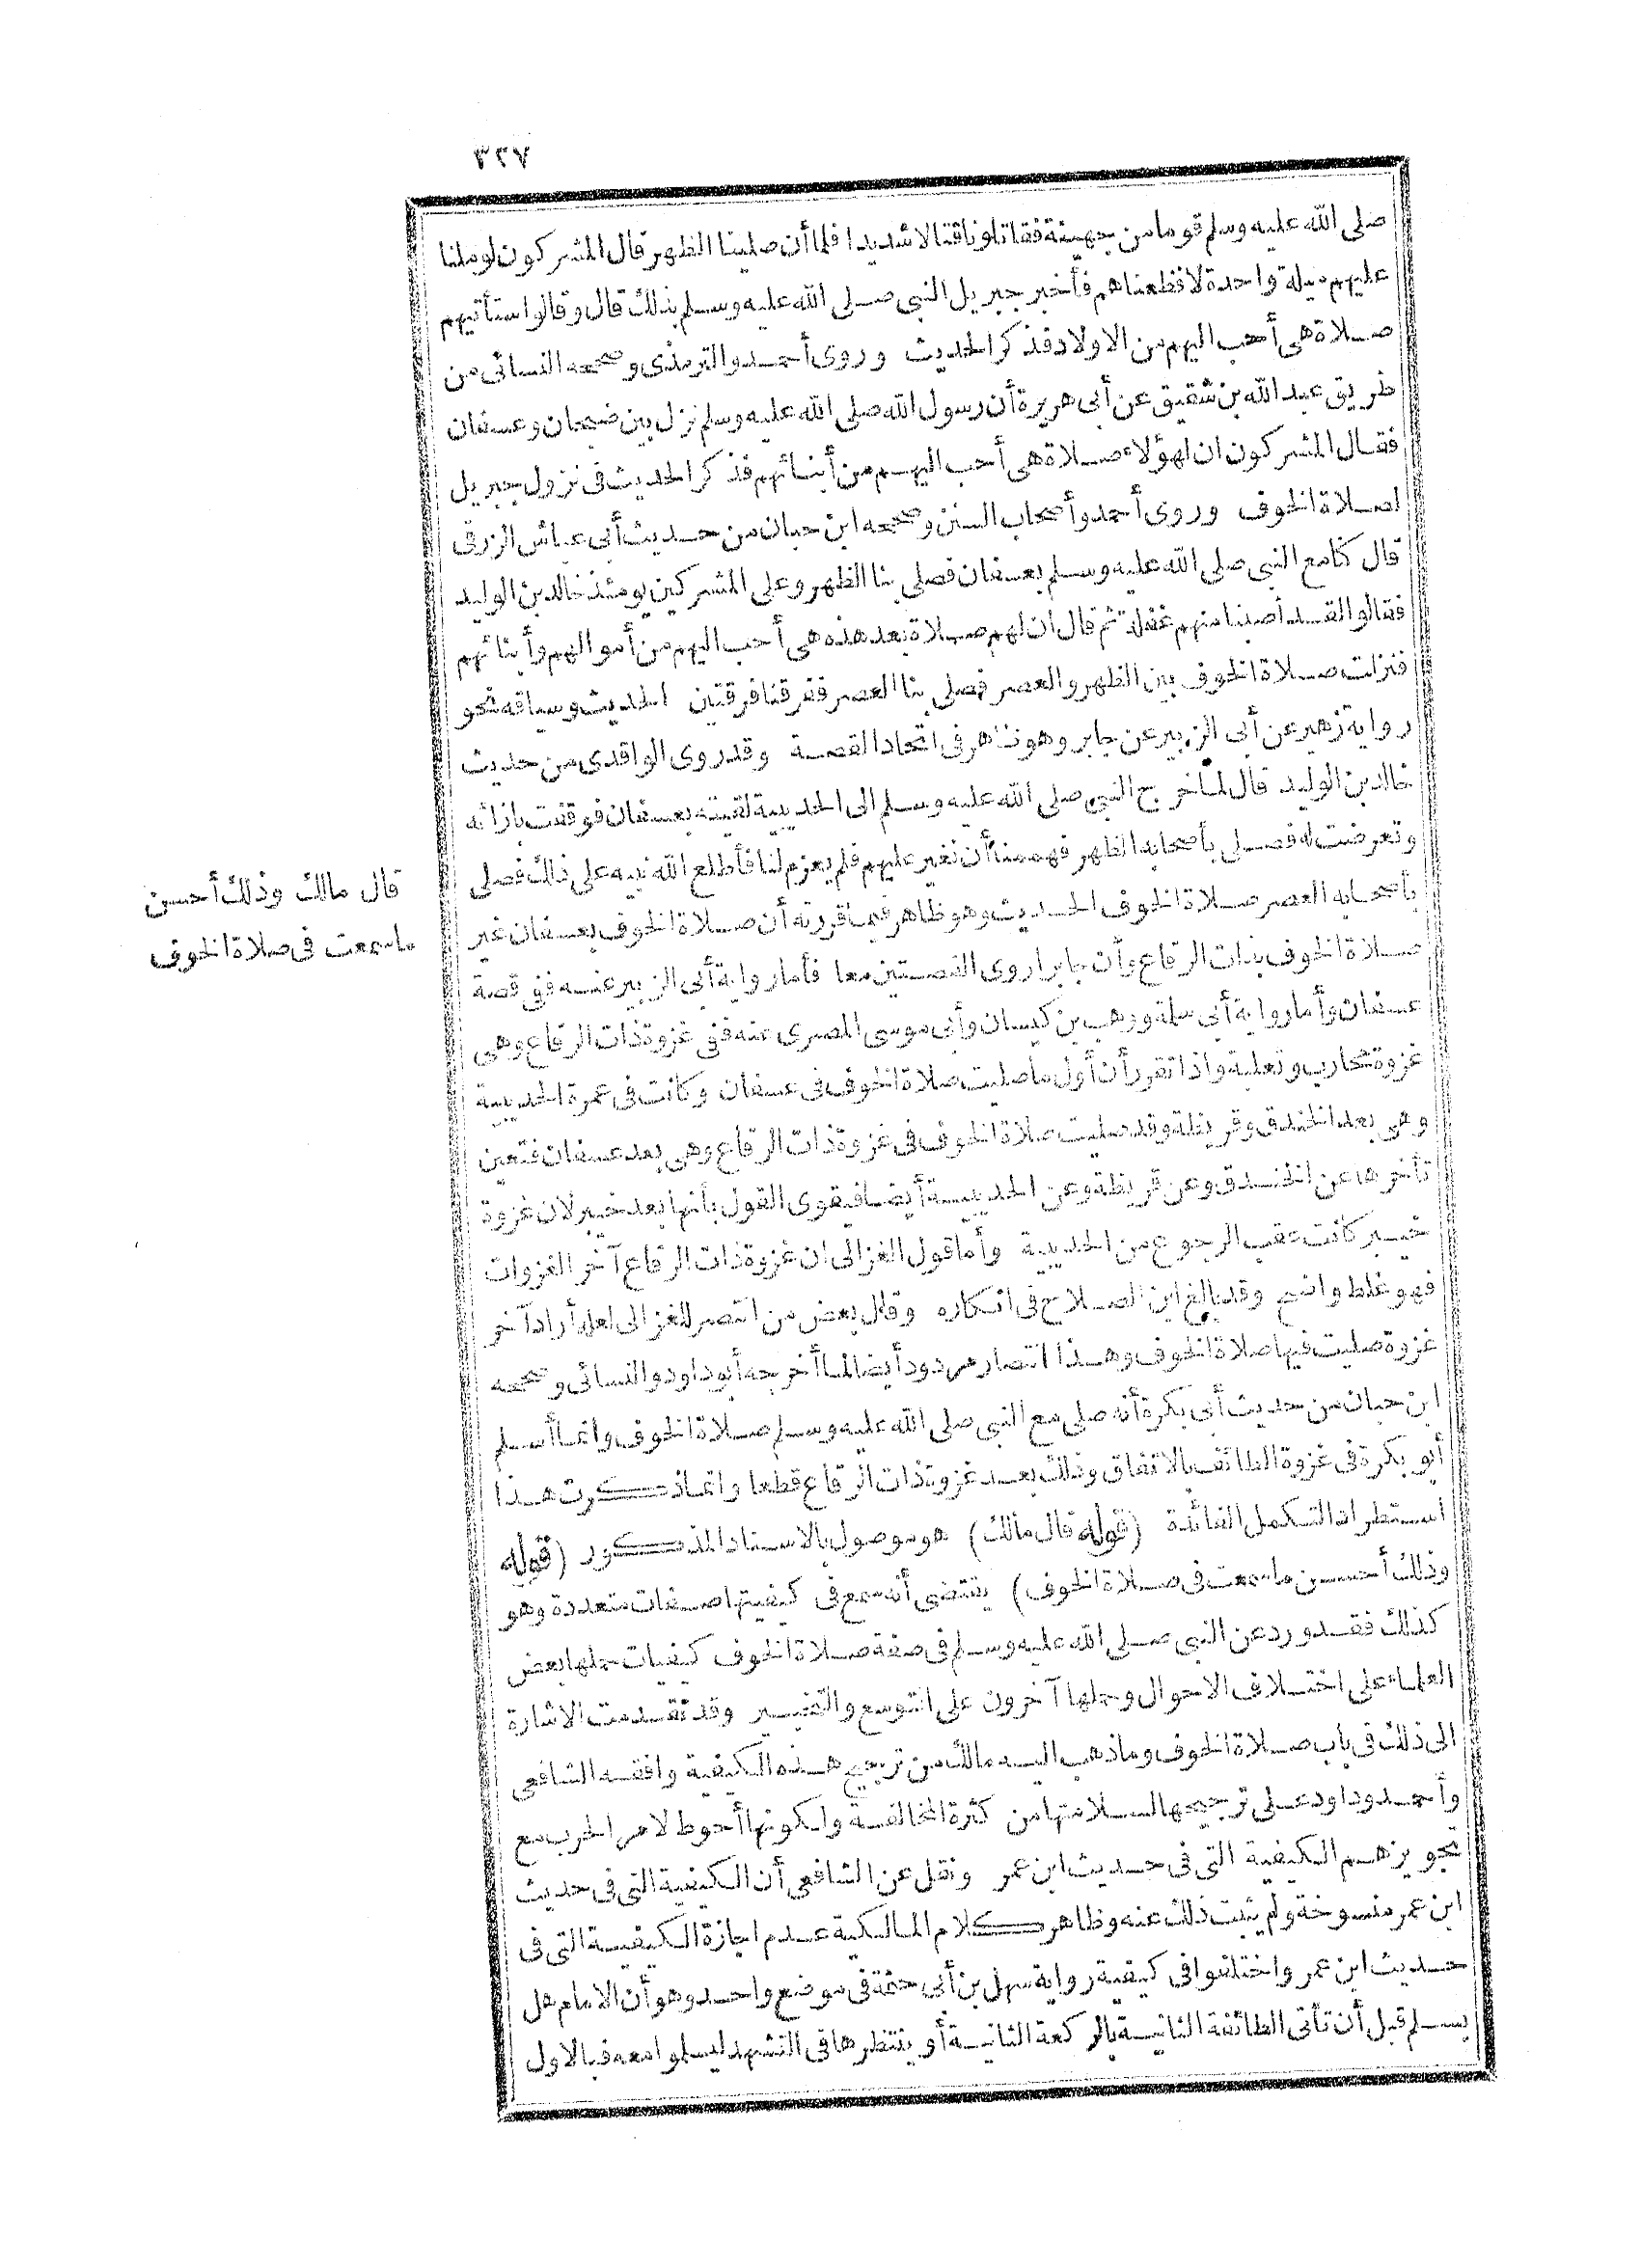 ٣٢٧
صلى الله عليه وسلم قوما من جهينة فقاتلونا قتالا شديدا فلما أن صلينا الظهر قال المشركون لو ملنا
عليهم ميلة واحدة لاقطعناهم فأخبر جبريل النبى صلى الله عليه وسلم بذلك قال وقالوا ستأتيهم
صلاة هى أحب اليهم من الاولاد فذكر الحديث وروى أحمد والترمذى وصححه النسائى من
طريق عبد الله بن شقيق عن أبى هريرة أن رسول الله صلى الله عليه وسلم نزل بين ضجنان وعسفان
فقال المشركون ان لهؤلاء صلاة هى أحب اليهم من أبنائهم فذكر الحديث فى نزول جبريل
لصلاة الخوف وروى أحمد وأصحاب السنن وصححه ابن حبان من حديث أبى عياش الزرقى
قال كنا مع النبى صلى الله عليه وسلم بعسفان فصلى بنا الظهر وعلى المشركين يومئذ خالد بن الوليد
فقالوا لقد أصبنا منهم غفلة ثم قال ان لهم صلاة بعد هذه هى أحب اليهم من أموالهم وأبنائهم
فنزلت صلاة الخوف بين الظهر والعصر فصلى بنا العصر ففرقنا فرقتين الحديث وسياقه نحو
رواية زهير عن أبى الزبير عن جابر وهو ظاهر فى اتحاد القصة وقد روى الواقدى من حديث
خالد بن الوليد قال لما خرج النبى صلى الله عليه وسلم الى الحديبية لقيته بعسفان فوقفت بازائه
وتعرضت له فصلى بأصحابه الظهر فهممنا أن نغير عليهم فلم يعزم لنا فأطلع الله نبيه على ذلك فصلى
بأصحابه العصر صلاة الخوف الحديث وهو ظاهر فيما قررته أن صلاة الخوف بعسفان غير
صلاة الخوف بذات الرقاع وأن جابرا روى القصتين معا فأما رواية أبى الزبير عنه ففى قصة
عسفان وأما رواية أبى سلمة ووهب بن كيسان وأبى موسى المصرى عنه ففى غزوة ذات الرقاع وهى
غزوة محارب وثعلبة واذا تقرر أن أول ما صليت صلاة الخوف فى عسفان وكانت فى عمرة الحديبية
وهى بعد الخندق وقريظة وقد صليت صلاة الخوف فى غزوة ذات الرقاع وهى بعد عسفان فتعين
تأخرها عن الخندق وعن قريظة وعن الحديبية أيضا فيقوى القول بأنها بعد خيبر لان غزوة
خيبر كانت عقب الرجوع من الحديبية وأما قول الغزالى ان غزوة ذات الرقاع آخر الغزوات
فهو غلط واضح وقد بالغ ابن الصلاح فى انكاره وقال بعض من انتصر للغزالى لعله أراد آخر
غزوة صليت فيها صلاة الخوف وهذا انتصار مردود أيضا لما أخرجه أبو داود والنسائى وصححه
ابن حبان من حديث أبى بكرة أنه صلى مع النبى صلى الله عليه وسلم صلاة الخوف وانما أسلم
أبو بكرة فى غزوة الطائف بالاتفاق وذلك بعد غزوة ذات الرقاع قطعا وانما ذكرت هذا
استطرادا لتكمل الفائدة (قوله قال مالك) هو موصول بالاسناد المذكور (قوله
وذلك أحسن ما سمعت فى صلاة الخوف) يقتضى أنه سمع فى كيفيتها صفات متعددة وهو
كذلك فقد ورد عن النبى صلى الله عليه وسلم فى صفة صلاة الخوف كيفيات حملها بعض
العلماء على اختلاف الاحوال وحملها آخرون على التوسع والتخيير وقد تقدمت الاشارة
الى ذلك فى باب صلاة الخوف وما ذهب اليه مالك من ترجيح هذه الكيفية وافقه الشافعى
وأحمد وداود على ترجيحها لسلامتها من كثرة المخالفة ولكونها أحوط لامر الحرب مع
تجويزهم الكيفية التى فى حديث ابن عمر ونقل عن الشافعى أن الكيفية التى فى حديث
ابن عمر منسوخة ولم يثبت ذلك عنه وظاهر كلام المالكية عدم اجازة الكيفية التى فى
حديث ابن عمر واختلفوا فى كيفية رواية سهل بن أبى حثمة فى موضع واحد وهو أن الامام هل
يسلم قبل أن تأتى الطائفة الثانية بالركعة الثانية أو ينتظرها فى التشهد ليسلموا معه فبالاول
قال مالك وذلك أحسن
ما سمعت فى صلاة الخوف